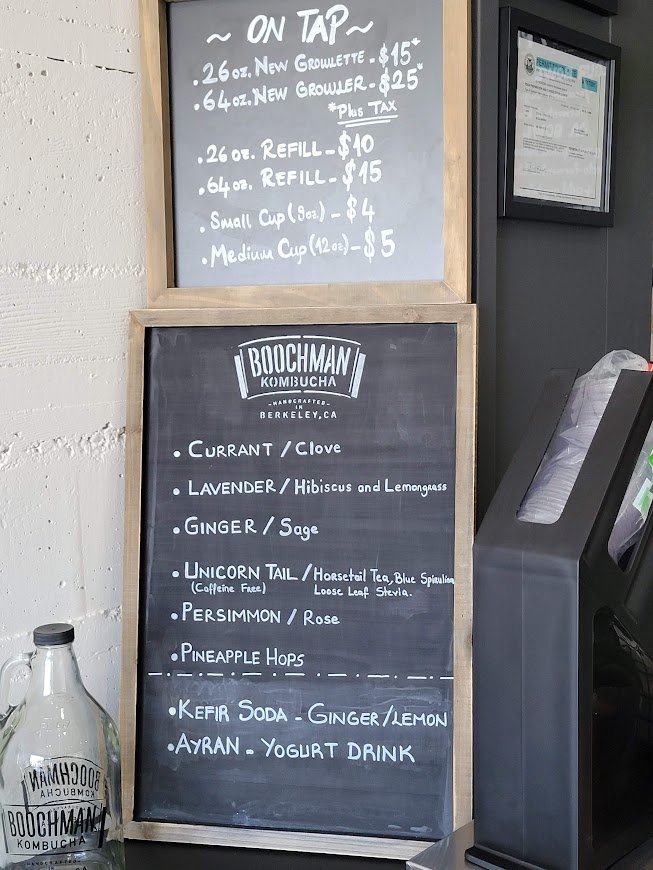 ~ ON TAP ~
.26 oz. NEW GROWLETTE - $15*
.64 oz. NEW GROWLER - $25*
*Plus TAX
.26 oz. REFILL - $10
.64 oz. REFILL - $15
. Small Cup (9oz) - $4
. Medium Cup (12oz) - $5
BOOCHMAN
KOMBUCHA
-HANDCRAFTED-
IN
BERKELEY, CA
• CURRANT / Clove
• LAVENDER / Hibiscus and Lemongrass
• GINGER / Sage
• UNICORN TAIL / Horsetail Tea, Blue Spirulina
(Caffeine Free) Loose Leaf Stevia.
• PERSIMMON / Rose
• PINEAPPLE HOPS
• KEFIR SODA - GINGER/LEMON
• AYRAN - YOGURT DRINK
BOOCHMAN
KOMBUCHA
BOOCHMAN
KOMBUCHA
HANDCRAFTED